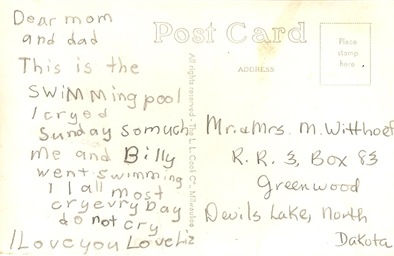 Dear mom
and dad
This is the
SWiMMing pool
I cryed
Sunday somuch
me and Billy
went swimming
I all most
cryevry bay
do not cry
I Love you Love Liz
Post Card
ADDRESS
Place
stamp
here
All rights reserved - The L. L. Cook Co., Milwaukee
Mr. & Mrs. M. Witthoef
R. R. 3, Box 83
Greenwood
Devils Lake, North
Dakota